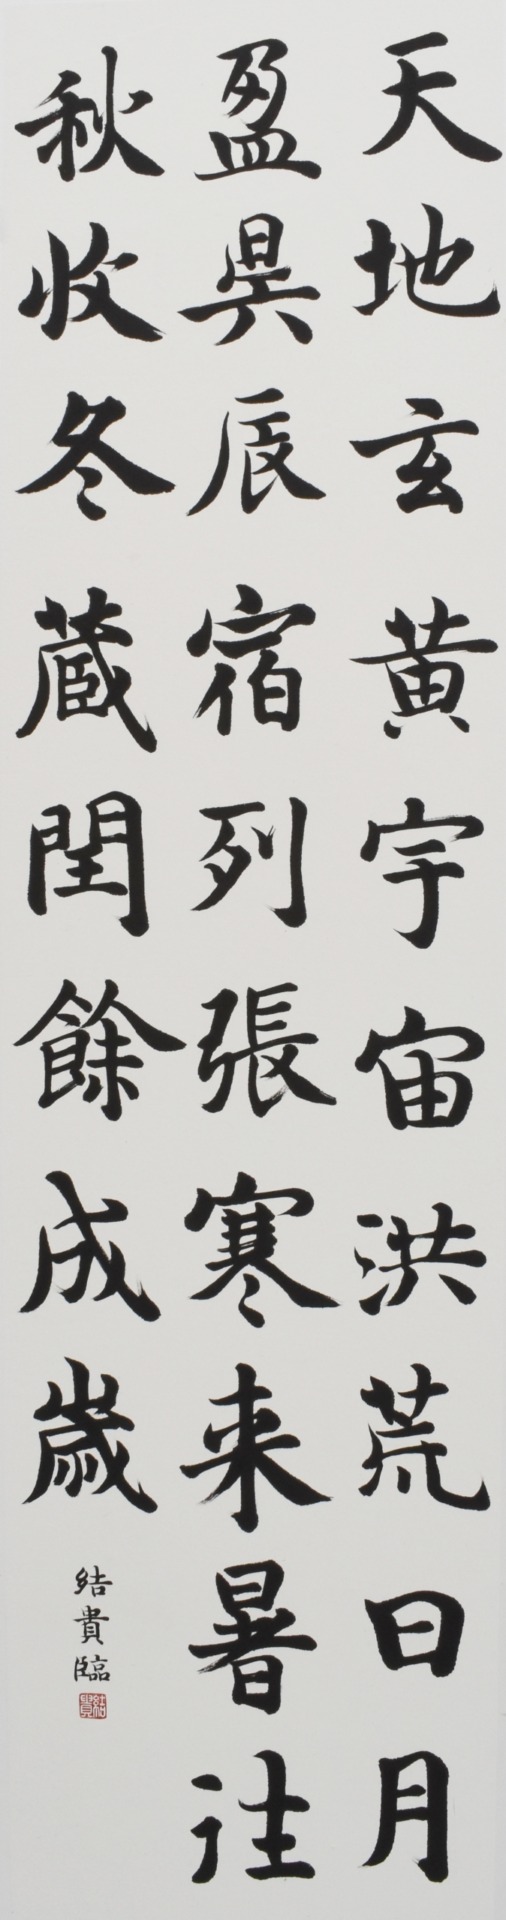 天地玄黄宇宙洪荒日月
盈昃辰宿列張寒来暑往
秋收冬蔵閏餘成歳
結貴臨
結貴